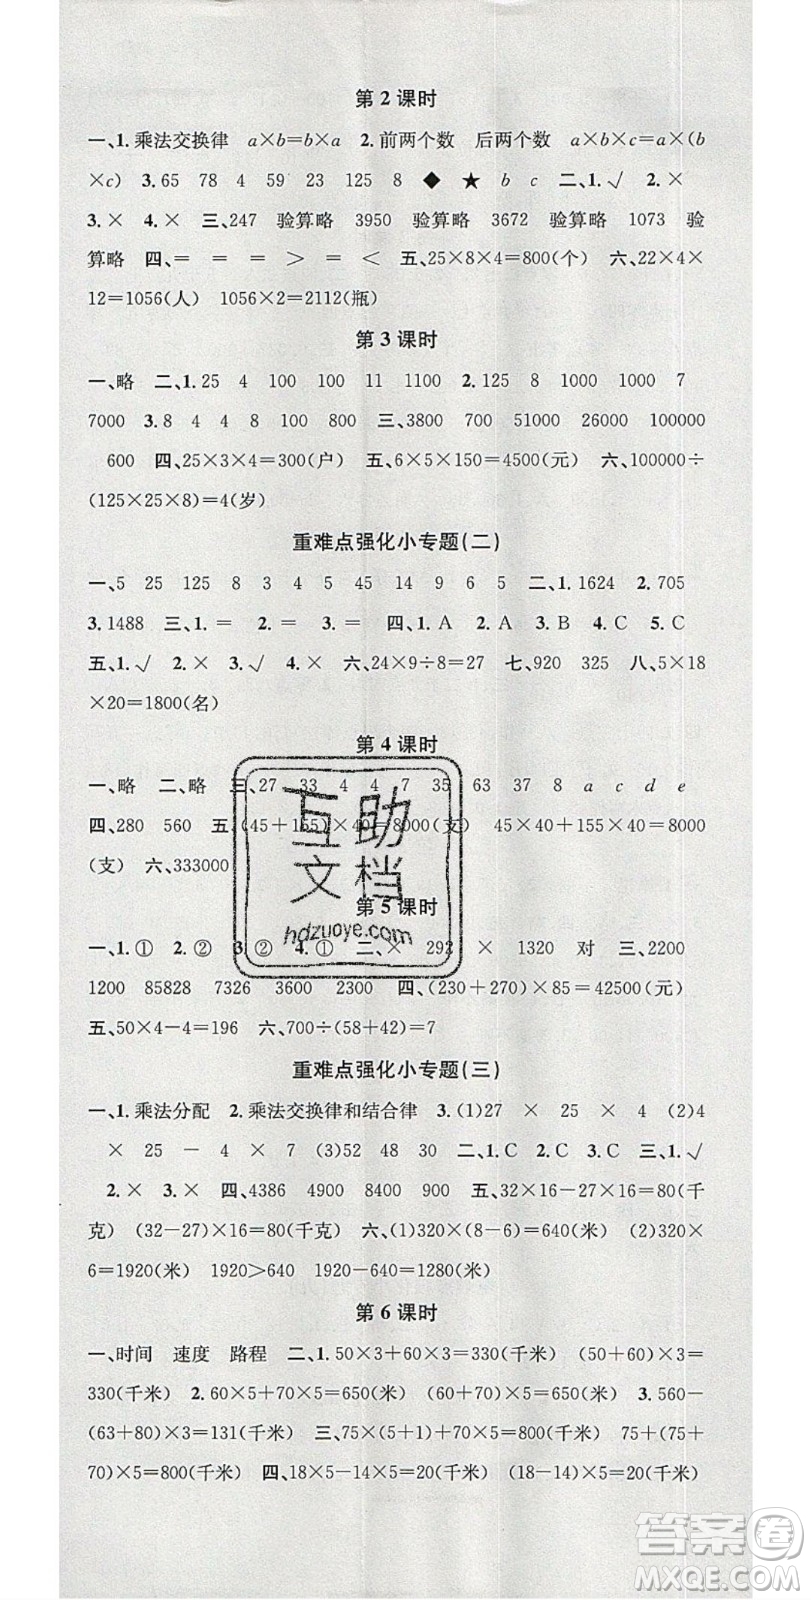 第2课时
一、1.乘法交换律 a×b=b×a 2.前两个数 后两个数 a×b×c=a×(b
×c) 3.65 78 4 59 23 125 8 ◆ ★ b c 二、1.√ 2.×
3.× 4.× 三、247 验算略 3950 验算略 3672 验算略 1073 验
算略 四、= = = > = < 五、25×8×4=800(个) 六、22×4×
12=1056(人) 1056×2=2112(瓶)
第3课时
一、略 二、1.25 4 100 100 11 1100 2.125 8 1000 1000 7
7000 3.8 4 4 8 100 800 三、3800 700 51000 26000 100000
600 四、25×3×4=300(户) 五、6×5×150=4500(元) 六、100000÷
(125×25×8)=4(岁)
重难点强化小专题(二)
一、5 25 125 8 3 4 5 45 14 9 6 5 二、1.1624 2.705
3.1488 三、1.= 2.= 3.= 四、1.A 2.A 3.B 4.C 5.C
五、1.√ 2.× 3.√ 4.× 六、24×9÷8=27 七、920 325 八、5×18
×20=1800(名)
第4课时
一、略 二、略 三、27 33 4 4 7 35 63 37 8 a c d e
四、280 560 五、(45+155)×40=8000(支) 45×40+155×40=8000
(支) 六、333000
互助
文档
hdzuoye.com
第5课时
一、1.① 2.② 3.② 4.① 二、× 292 × 1320 对 三、2200
1200 85828 7326 3600 2300 四、(230+270)×85=42500(元)
五、50×4-4=196 六、700÷(58+42)=7
重难点强化小专题(三)
一、1.乘法分配 2.乘法交换律和结合律 3.(1)27 × 25 × 4 (2)4
× 25 - 4 × 7 (3)52 48 30 二、1.C 2.C 3.C 三、1.√
2.× 3.× 四、4386 4900 8400 900 五、32×16-27×16=80(千
克) (32-27)×16=80(千克) 六、(1)320×(8-6)=640(米) (2)320×
6=1920(米) 1920>640 1920-640=1280(米)
第6课时
一、时间 速度 路程 二、1.50×3+60×3=330(千米) (50+60)×3=
330(千米) 2.60×5+70×5=650(米) (60+70)×5=650(米) 3.560-
(63+80)×3=131(千米) 三、75×(5+1)+70×5=800(千米) 75+(75+
70)×5=800(千米) 四、18×5-14×5=20(千米) (18-14)×5=20(千米)
答案圈
MXQE.COM